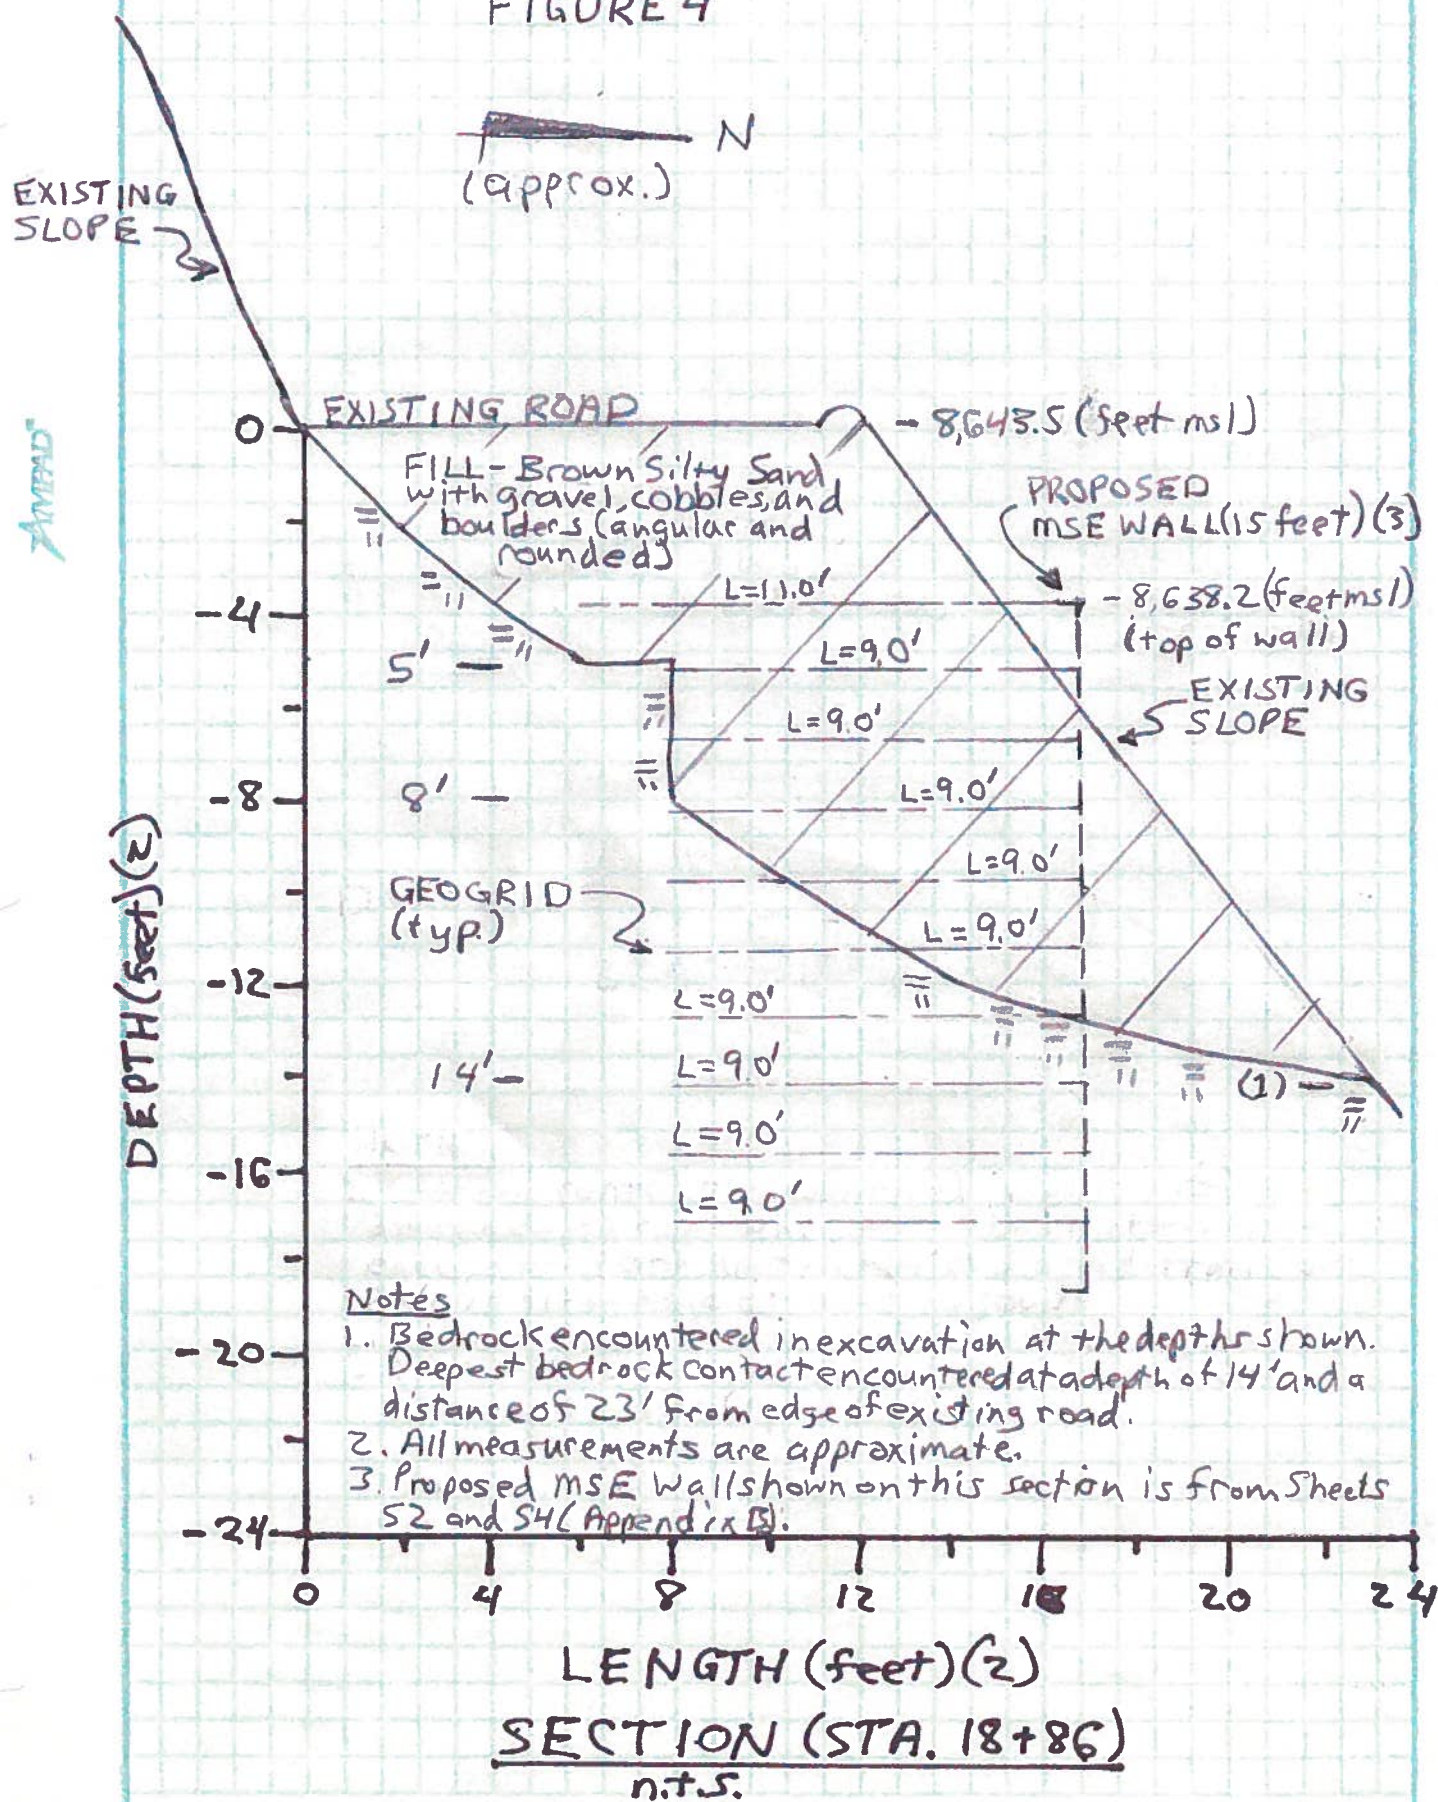 FIGURE 4
N
(approx.)
EXISTING
SLOPE
AMPAD
0
EXISTING ROAD
- 8,643.5 (feet msl)
FILL - Brown Silty Sand
with gravel, cobbles, and
boulders (angular and
rounded)
PROPOSED
MSE WALL (15 feet) (3)
L=11.0'
- 8,638.2 (feet msl)
(top of wall)
-4
5'
L=9.0'
EXISTING
SLOPE
L=9.0'
-8
8'
L=9.0'
L=9.0'
GEOGRID
(typ.)
L=9.0'
-12
L=9.0'
14'
L=9.0'
(1)
L=9.0'
-16
L=9.0'
DEPTH (feet) (2)
Notes
1. Bedrock encountered in excavation at the depths shown.
Deepest bedrock contact encountered at a depth of 14' and a
distance of 23' from edge of existing road.
2. All measurements are approximate.
3. Proposed MSE Wall shown on this section is from Sheets
S2 and S4 (Appendix B).
-20
-24
0 4 8 12 16 20 24
LENGTH (feet) (2)
SECTION (STA. 18+86)
n.t.s.